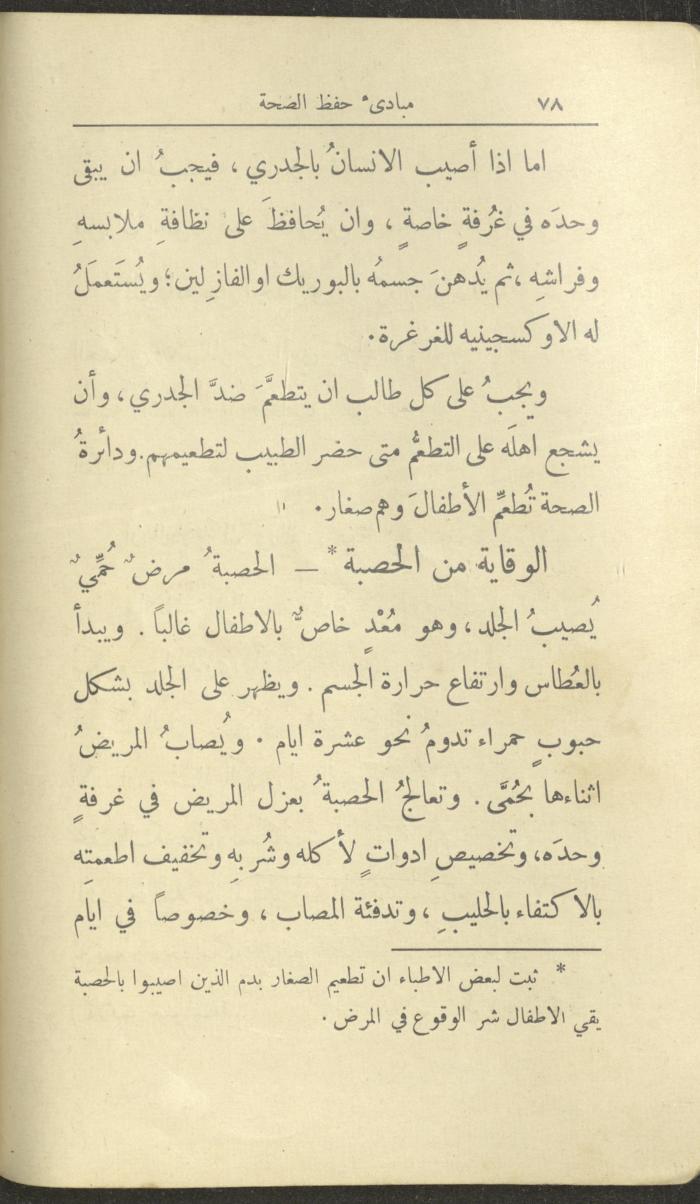 ٧٨ مبادىء حفظ الصحة
اما اذا أصيب الانسانُ بالجدري ، فيجبُ ان يبقى
وحدَه في غرُفةٍ خاصةٍ ، وان يُحافظَ على نظافةِ ملابسهِ
وفراشِه ، ثم يُدهنَ جسمُه بالبوريك او الفازِلين ؛ ويُستَعملُ
له الاوكسجينيه للغرغرة .
ويجبُ على كل طالب ان يتطعَّمَ ضدَّ الجدري ، وأن
يشجع اهلَه على التطعُّم متى حضر الطبيب لتطعيمهم . ودائرةُ
الصحة تُطعِّم الأطفالَ وهم صغار .
الوقاية من الحصبة * – الحصبةُ مرضٌ حُمِّيٌ
يُصيبُ الجلد ، وهو مُعْدٍ خاصٌّ بالاطفال غالباً . ويبدأ
بالعُطاس وارتفاع حرارة الجسم . ويظهر على الجلد بشكل
حبوبٍ حمراء تدومُ نحو عشرة ايام . ويُصابُ المريضُ
اثناءها بحُمَّى . وتعالجُ الحصبةُ بعزل المريض في غرفةٍ
وحدَه ، وتخصيصِ ادواتٍ لأكله وشُربه وتخفيف اطعمتِه
بالاكتفاء بالحليبِ ، وتدفئة المصاب ، وخصوصاً في ايام
* ثبت لبعض الاطباء ان تطعيم الصغار بدم الذين اصيبوا بالحصبة
يقي الاطفال شر الوقوع في المرض .